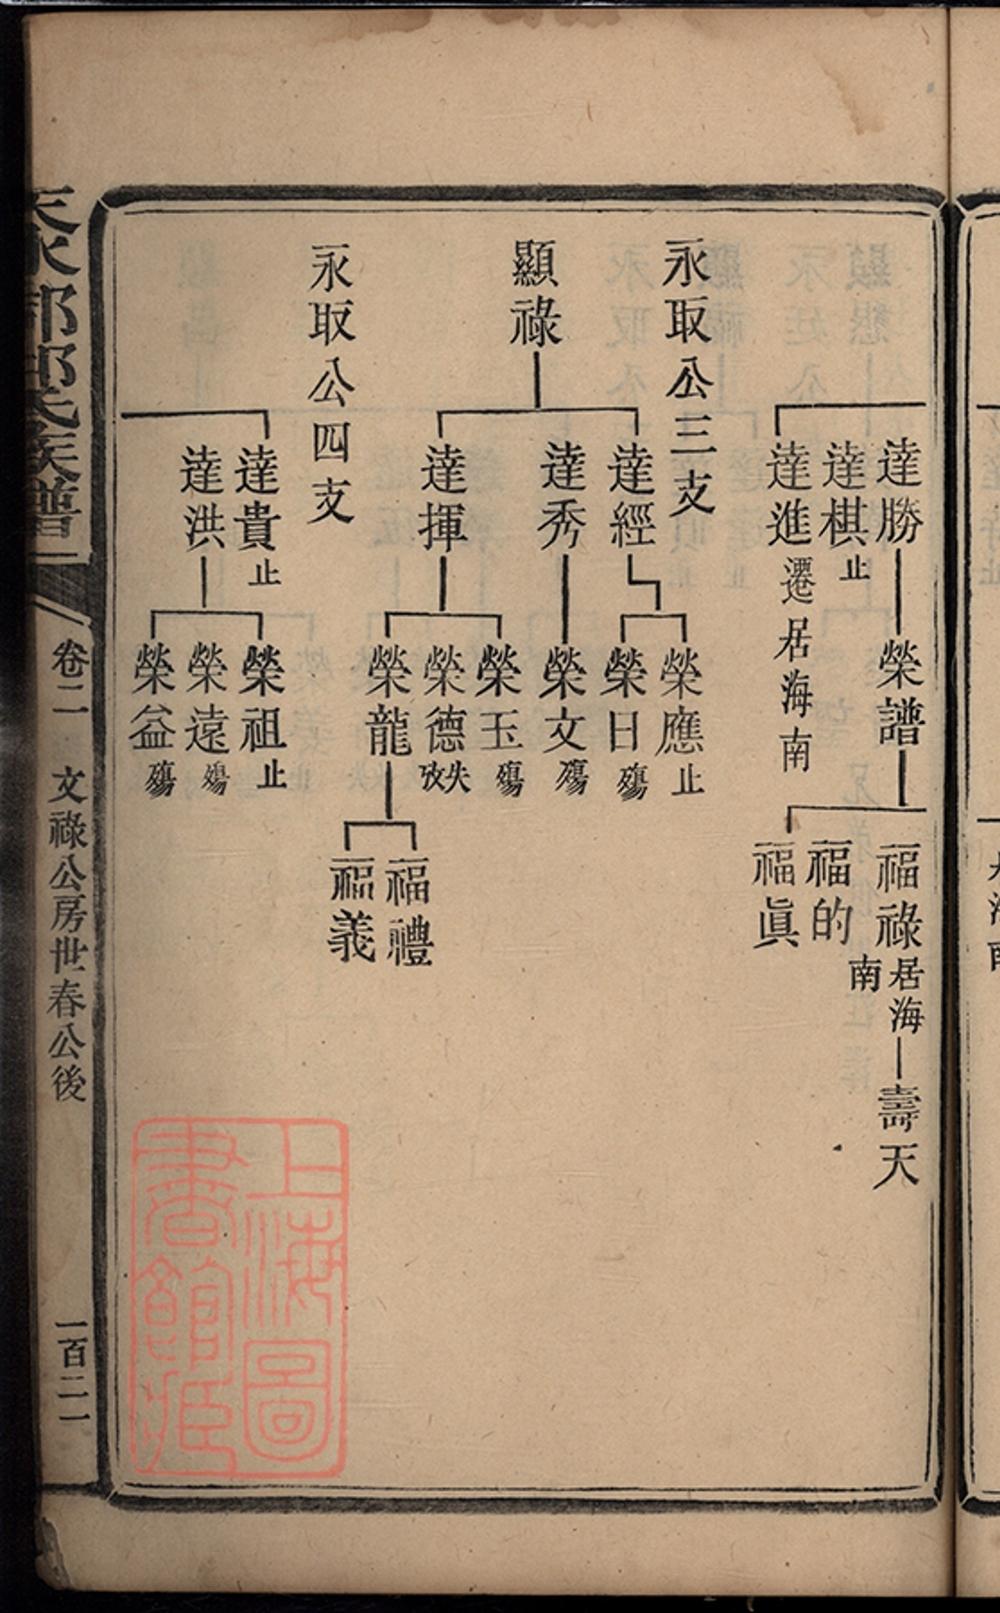 達勝
榮譜
福祿居海南
壽天
福的
福眞
達棋止
達進遷居海南
永取公三支
顯祿
達經
榮應止
榮日殤
達秀
榮文殤
達揮
榮玉殤
榮德失攷
榮龍
福禮
福義
永取公四支
達貴止
達洪
榮祖止
榮遠殤
榮益殤
卷二 文祿公房世春公後
一百二一
上海圖
書館藏